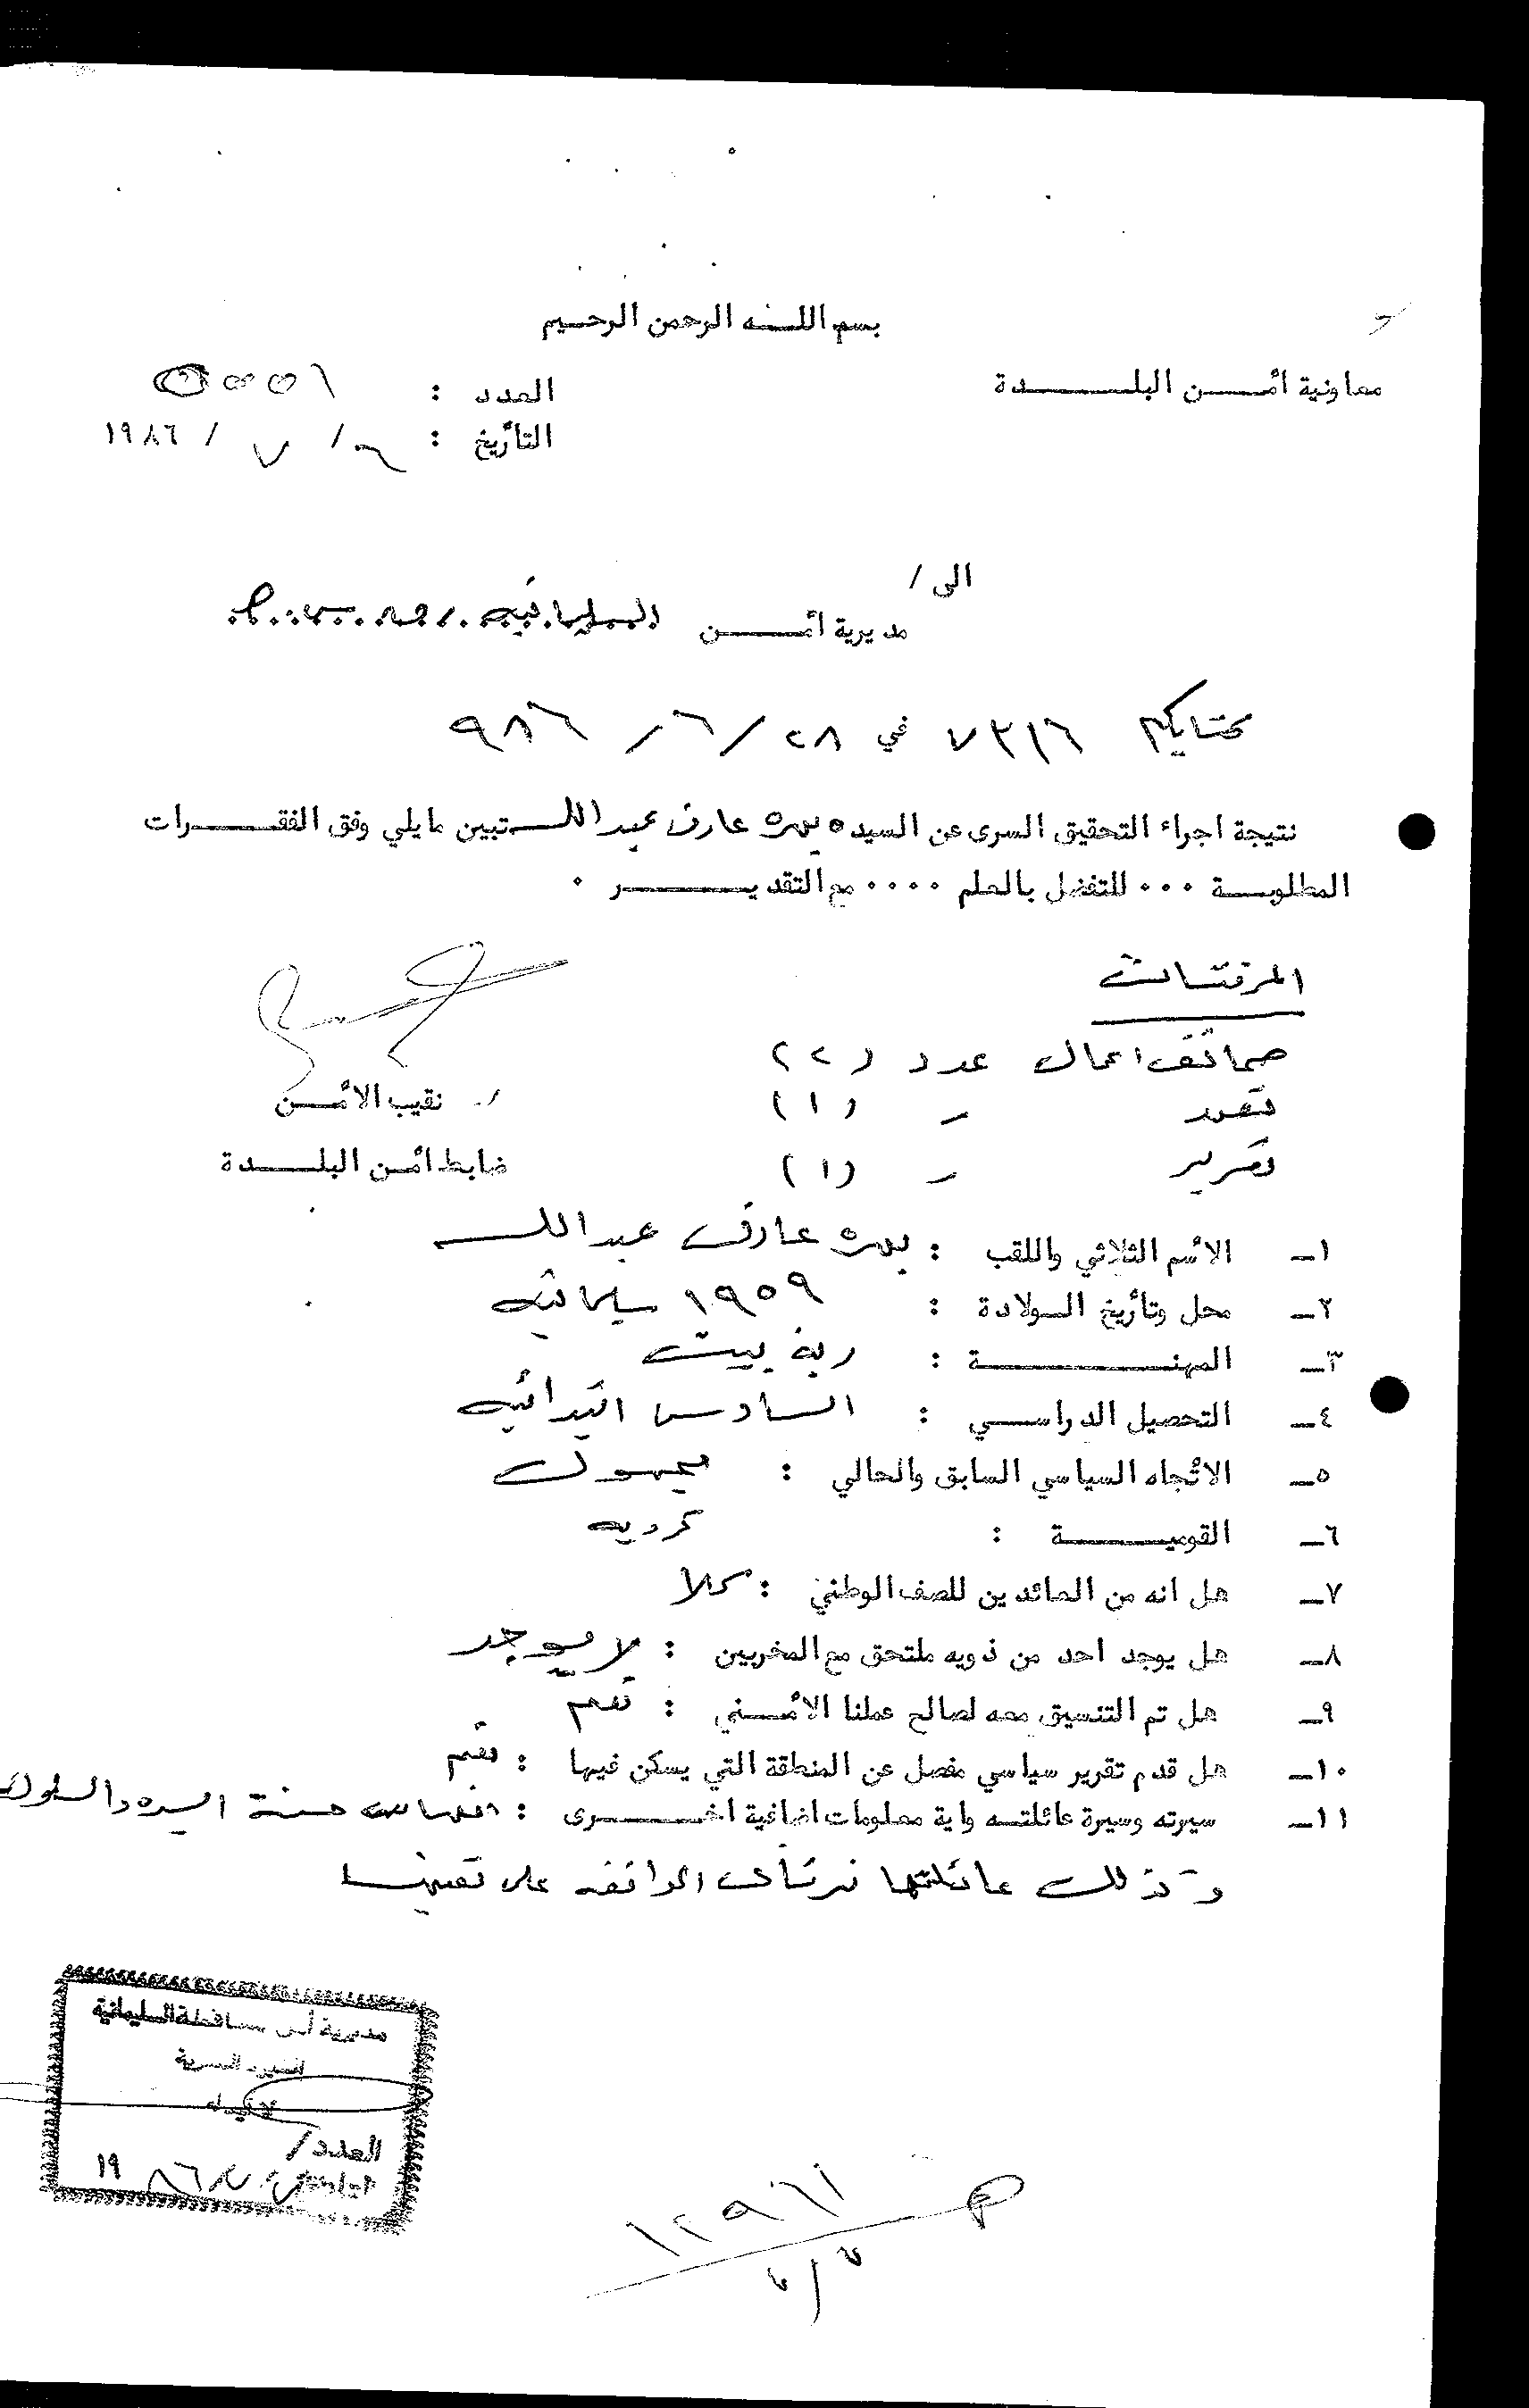 بسم اللــه الرحمن الرحيم
معاونية أمــن البلــــدة
العدد :
التأريخ : ٢ / ٧ / ١٩٨٦
الى /
مديرية أمــــن السليمانيه
كتابكم ٧٣١٦ في ٢٨ / ٦ / ٩٨٦
نتيجة اجراء التحقيق السرى عن السيده بهره عارف عبدالله تبين مايلي وفق الفقــــرات
المطلوبــة ٠٠٠ للتفضل بالعلم ٠٠٠٠ مع التقديــــــر ٠
المرفقات
صحائف اعمال عدد (٢)
تعهد - (١)
تقرير - (١)
نقيب الأمــن
ضابط أمن البلــــدة
١ــ الأسم الثلاثي واللقب : بهره عارف عبدالله
٢ــ محل وتأريخ الــولادة : ١٩٥٩ سليمانيه
٣ــ المهنــــــــة : ربة بيت
٤ــ التحصيل الدراســـي : السادس ابتدائيه
٥ــ الأتجاه السياسي السابق والحالي : مجهول
٦ــ القوميـــــة : كرديه
٧ــ هل انه من العائدين للصف الوطني : كلا
٨ــ هل يوجد احد من ذويه ملتحق مع المخربين : لا يوجد
٩ــ هل تم التنسيق معه لصالح عملنا الأمــني : نعم
١٠ــ هل قدم تقرير سياسي مفصل عن المنطقة التي يسكن فيها : نعم
١١ــ سيرته وسيرة عائلتــه واية معلومات اضافية اخــــرى : انها حسنة السيره والسلوك
وكذلك عائلتها نرتأى الموافقه على تعينها
مديرية أمن محافظة السليمانية
العدد /
التاريخ ٨٦ ١٩
١٢٩٦١